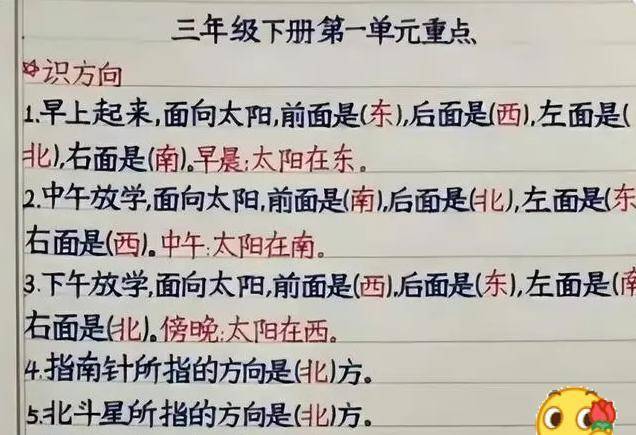 三年级下册第一单元重点
☆识方向
1.早上起来,面向太阳,前面是(东),后面是(西),左面是(
北),右面是(南)。早晨:太阳在东。
2.中午放学,面向太阳,前面是(南),后面是(北),左面是(东
右面是(西)。中午:太阳在南。
3.下午放学,面向太阳,前面是(西),后面是(东),左面是(南
右面是(北)。傍晚:太阳在西。
4.指南针所指的方向是(北)方。
5.北斗星所指的方向是(北)方。